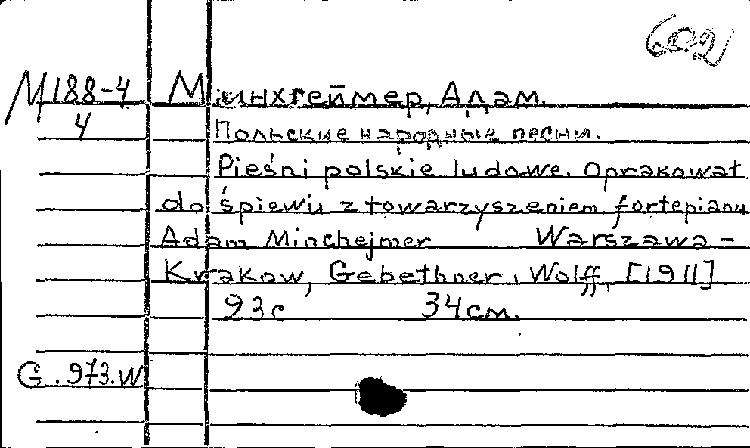 602
М188-4 Минхгеймер, Адам.
4 Польские народные песни.
Pieśni polskie ludowe. Oprakował
do śpiewu z towarzyszeniem fortepianu
Adam Minchejmer Warszawa-
Krakow, Gebethner i Wolff, [1911]
93с 34см.
G.973.W